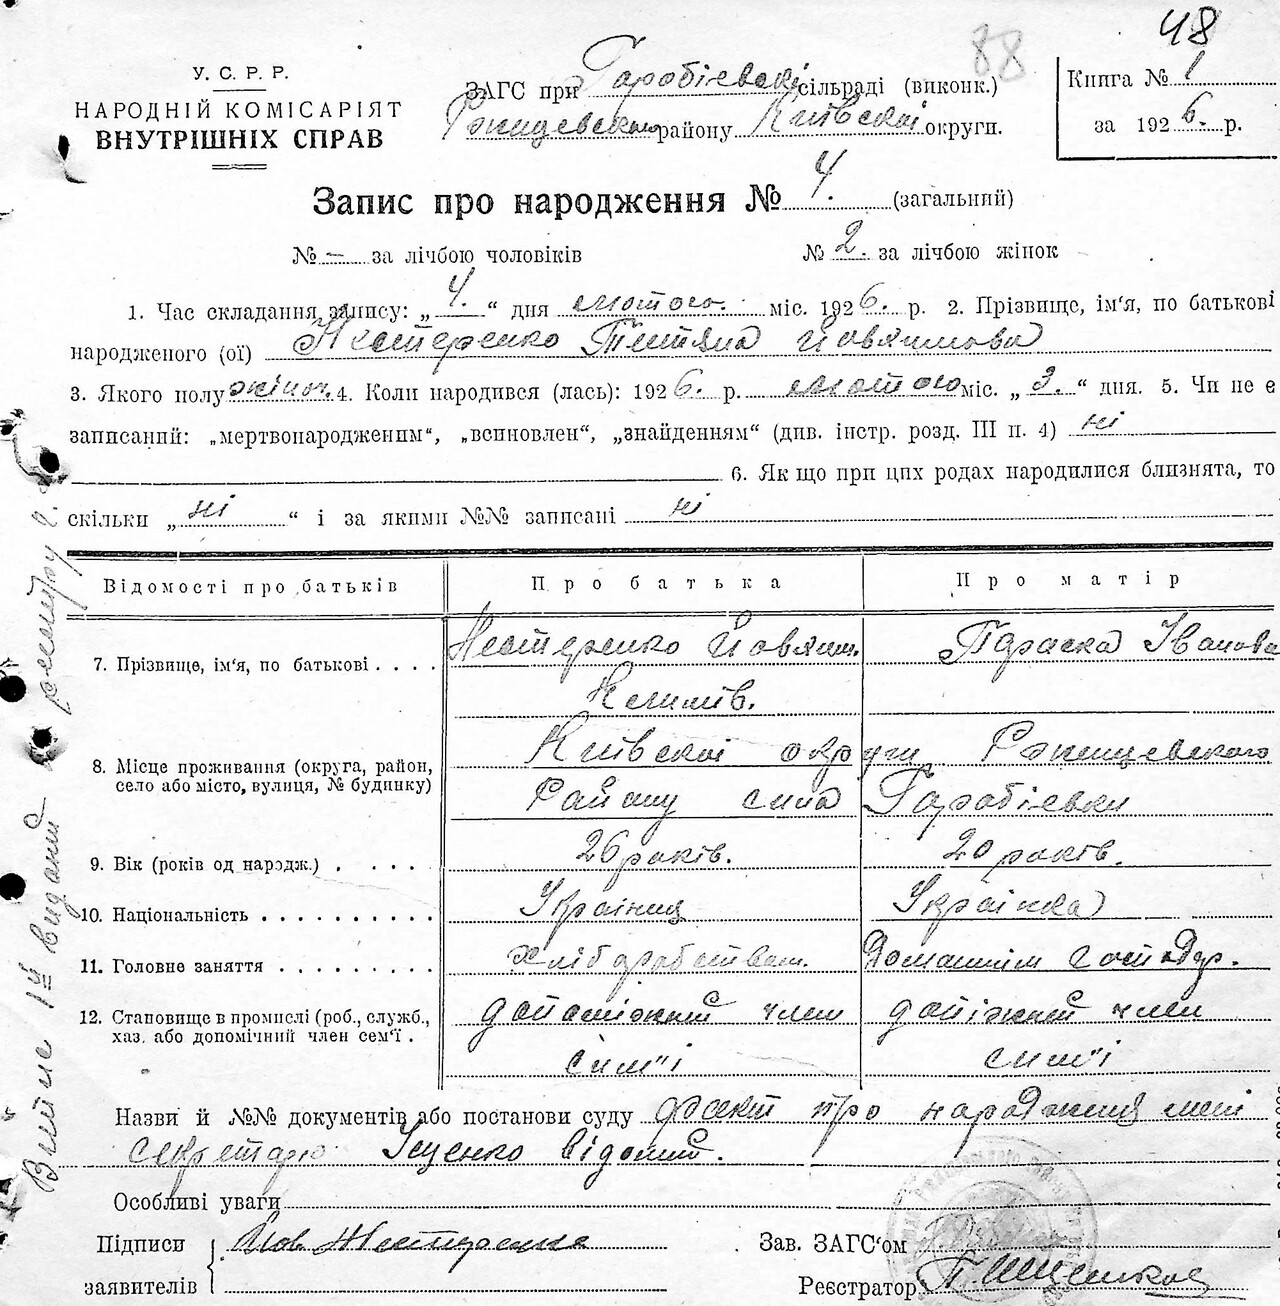 48
88
У. С. Р. Р.
НАРОДНІЙ КОМІСАРІЯТ
ВНУТРІШНІХ СПРАВ
ЗАГС при Гаробіевскі сільраді (виконк.)
Ржищевском району Київскоі округи.
Книга № 1
за 1926. р.
Запис про народження № 4. (загальний)
№ – за лічбою чоловіків № 2. за лічбою жінок
1. Час складання запису: „4.“ дня лютого міс. 1926. р. 2. Прізвище, ім'я, по батькові
народженого (ої) Нестеренко Тетяна Йовхимова
3. Якого полу жіноч. 4. Коли народився (лась): 1926. р. лютого міс. „3.“ дня. 5. Чи не є
записаний: „мертвонародженим“, „всиновлен“, „знайденням“ (див. інстр. розд. III п. 4) ні
6. Як що при цих родах народилися близнята, то
скільки „ні“ і за якими №№ записані ні
Відомості про батьків Про батька Про матір
7. Прізвище, ім'я, по батькові . . . . Нестеренко Йовхим. Параска Іванова
8. Місце проживання (округа, район, село або місто, вулиця, № будинку) Київскоі округи Ржищевского
Району села Гаробіевки
9. Вік (років од народж.) . . . . . 26 років. 20 років.
10. Національність . . . . . . . . . . Українец Українка
11. Головне заняття . . . . . . . . . хліборобством. Домашнім господар.
12. Становище в промислі (роб., служб., хаз. або допомічний член сем'ї . допоміжний член допіжний член
сим'ї сим'ї
Назви й №№ документів або постанови суду факт про народження мені
секретарю Іщенко відомий.
Особливі уваги
Підписи заявителів Йов. Нестеренко
Зав. ЗАГС'ом
Реєстратор П. Іщенко
Витяг 1й виданий